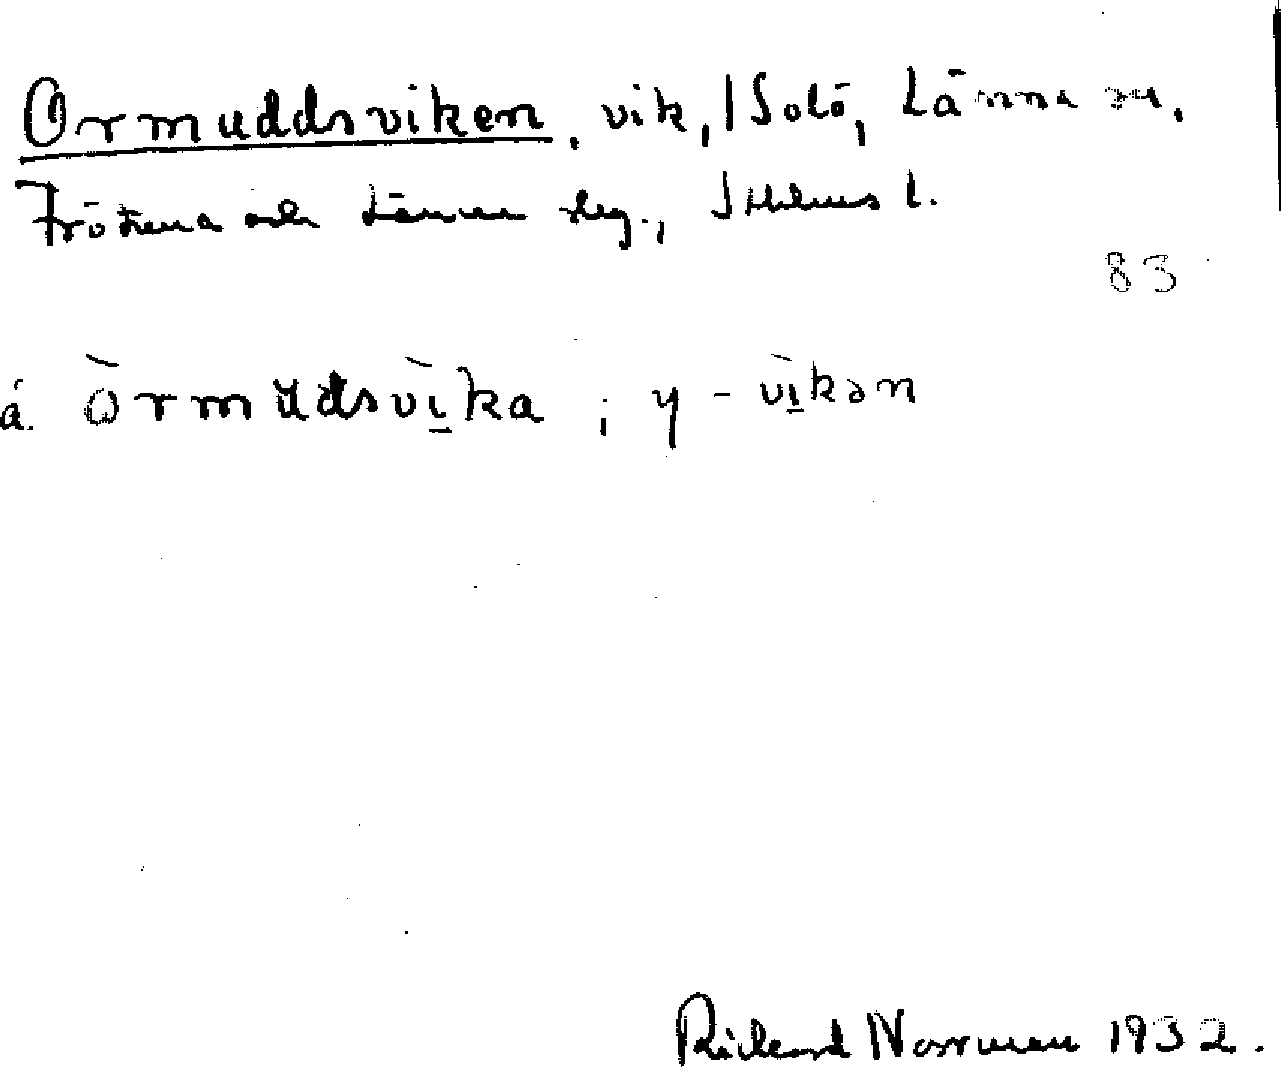 Ormuddsviken, vik, Solö, Länna sn,
Frötuna och Länna slg., Sthlms l.
83
á. òrmudsvìka ; y -vìkən
Rickard Norrman 1932.